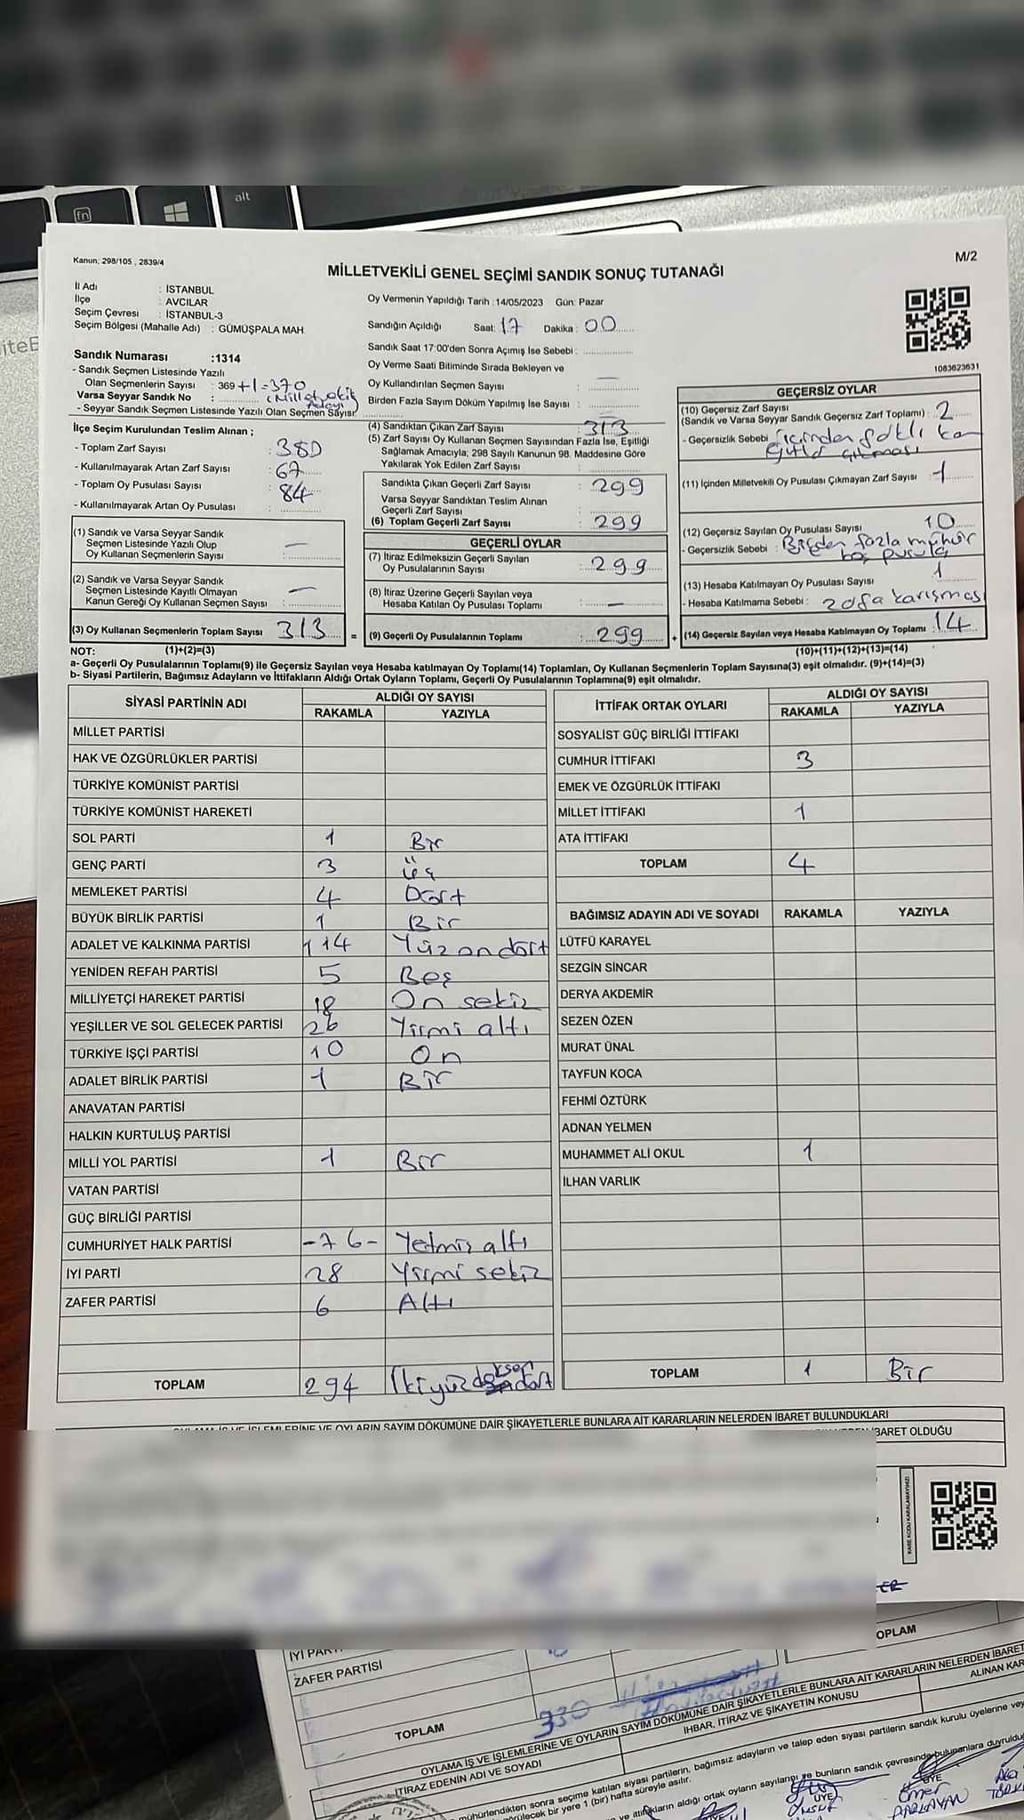 fn
alt
iteE
Kanun; 298/105 , 2839/4
M/2
MİLLETVEKİLİ GENEL SEÇİMİ SANDIK SONUÇ TUTANAĞI
İl Adı : İSTANBUL
İlçe : AVCILAR
Seçim Çevresi : İSTANBUL-3
Seçim Bölgesi (Mahalle Adı) : GÜMÜŞPALA MAH.
Sandık Numarası :1314
- Sandık Seçmen Listesinde Yazılı
Olan Seçmenlerin Sayısı : 369 +1=370
Varsa Seyyar Sandık No : (Milletvekili Adayı)
- Seyyar Sandık Seçmen Listesinde Yazılı Olan Seçmen Sayısı:
Oy Vermenin Yapıldığı Tarih : 14/05/2023 Gün: Pazar
Sandığın Açıldığı Saat: 17 Dakika : 00
Sandık Saat 17:00'den Sonra Açımış İse Sebebi :
Oy Verme Saati Bitiminde Sırada Bekleyen ve
Oy Kullandırılan Seçmen Sayısı : —
Birden Fazla Sayım Döküm Yapılmış İse Sayısı :
1083623631
İlçe Seçim Kurulundan Teslim Alınan ;
- Toplam Zarf Sayısı : 380
- Kullanılmayarak Artan Zarf Sayısı : 67
- Toplam Oy Pusulası Sayısı : 84
- Kullanılmayarak Artan Oy Pusulası :
(1) Sandık ve Varsa Seyyar Sandık
Seçmen Listesinde Yazılı Olup
Oy Kullanan Seçmenlerin Sayısı : —
(2) Sandık ve Varsa Seyyar Sandık
Seçmen Listesinde Kayıtlı Olmayan
Kanun Gereği Oy Kullanan Seçmen Sayısı : —
(3) Oy Kullanan Seçmenlerin Toplam Sayısı : 313 =
(4) Sandıktan Çıkan Zarf Sayısı : 313
(5) Zarf Sayısı Oy Kullanan Seçmen Sayısından Fazla İse, Eşitliği
Sağlamak Amacıyla; 298 Sayılı Kanunun 98. Maddesine Göre
Yakılarak Yok Edilen Zarf Sayısı :
Sandıkta Çıkan Geçerli Zarf Sayısı : 299
Varsa Seyyar Sandıktan Teslim Alınan
Geçerli Zarf Sayısı :
(6) Toplam Geçerli Zarf Sayısı : 299
GEÇERLİ OYLAR
(7) İtiraz Edilmeksizin Geçerli Sayılan
Oy Pusulalarının Sayısı : 299
(8) İtiraz Üzerine Geçerli Sayılan veya
Hesaba Katılan Oy Pusulası Toplamı : —
(9) Geçerli Oy Pusulalarının Toplamı : 299 +
GEÇERSİZ OYLAR
(10) Geçersiz Zarf Sayısı
(Sandık ve Varsa Seyyar Sandık Geçersiz Zarf Toplamı) : 2
- Geçersizlik Sebebi : içinden farklı
çıkması
(11) İçinden Milletvekili Oy Pusulası Çıkmayan Zarf Sayısı : 1
(12) Geçersiz Sayılan Oy Pusulası Sayısı : 10
- Geçersizlik Sebebi : Birden fazla mühür
boş pusula
(13) Hesaba Katılmayan Oy Pusulası Sayısı : 1
- Hesaba Katılmama Sebebi : zarfa karışması
(14) Geçersiz Sayılan veya Hesaba Katılmayan Oy Toplamı : 14
NOT: (1)+(2)=(3) (10)+(11)+(12)+(13)=(14)
a- Geçerli Oy Pusulalarının Toplamı(9) ile Geçersiz Sayılan veya Hesaba katılmayan Oy Toplamı(14) Toplamları, Oy Kullanan Seçmenlerin Toplam Sayısına(3) eşit olmalıdır. (9)+(14)=(3)
b- Siyasi Partilerin, Bağımsız Adayların ve İttifakların Aldığı Ortak Oyların Toplamı, Geçerli Oy Pusulalarının Toplamına(9) eşit olmalıdır.
SİYASİ PARTİNİN ADI
ALDIĞI OY SAYISI
RAKAMLA YAZIYLA
MİLLET PARTİSİ
HAK VE ÖZGÜRLÜKLER PARTİSİ
TÜRKİYE KOMÜNİST PARTİSİ
TÜRKİYE KOMÜNİST HAREKETİ
SOL PARTİ 1 Bir
GENÇ PARTİ 3 Üç
MEMLEKET PARTİSİ 4 Dört
BÜYÜK BİRLİK PARTİSİ 1 Bir
ADALET VE KALKINMA PARTİSİ 114 Yüzondört
YENİDEN REFAH PARTİSİ 5 Beş
MİLLİYETÇİ HAREKET PARTİSİ 18 On sekiz
YEŞİLLER VE SOL GELECEK PARTİSİ 26 Yirmi altı
TÜRKİYE İŞÇİ PARTİSİ 10 On
ADALET BİRLİK PARTİSİ 1 Bir
ANAVATAN PARTİSİ
HALKIN KURTULUŞ PARTİSİ
MİLLİ YOL PARTİSİ 1 Bir
VATAN PARTİSİ
GÜÇ BİRLİĞİ PARTİSİ
CUMHURİYET HALK PARTİSİ -76- Yetmiş altı
İYİ PARTİ 28 Yirmi sekiz
ZAFER PARTİSİ 6 Altı
TOPLAM 294 İkiyüzdoksandört
İTTİFAK ORTAK OYLARI
ALDIĞI OY SAYISI
RAKAMLA YAZIYLA
SOSYALİST GÜÇ BİRLİĞİ İTTİFAKI
CUMHUR İTTİFAKI 3
EMEK VE ÖZGÜRLÜK İTTİFAKI
MİLLET İTTİFAKI 1
ATA İTTİFAKI
TOPLAM 4
BAĞIMSIZ ADAYIN ADI VE SOYADI RAKAMLA YAZIYLA
LÜTFÜ KARAYEL
SEZGİN SİNCAR
DERYA AKDEMİR
SEZEN ÖZEN
MURAT ÜNAL
TAYFUN KOCA
FEHMİ ÖZTÜRK
ADNAN YELMEN
MUHAMMET ALİ OKUL 1
İLHAN VARLIK
TOPLAM 1 Bir
OYLAMA İŞ VE İŞLEMLERİNE VE OYLARIN SAYIM DÖKÜMÜNE DAİR ŞİKAYETLERLE BUNLARA AİT KARARLARIN NELERDEN İBARET BULUNDUKLARI
İBARET OLDUĞU
KARE KODU KARALAMAYINIZ!
İYİ PARTİ
ZAFER PARTİSİ
TOPLAM 330
OPLAM
OYLAMA İŞ VE İŞLEMLERİNE VE OYLARIN SAYIM DÖKÜMÜNE DAİR ŞİKAYETLERLE BUNLARA AİT KARARLARIN NELERDEN İBARET
İTİRAZ EDENİN ADI VE SOYADI
İHBAR, İTİRAZ VE ŞİKAYETİN KONUSU
ALINAN KAR
mühürlendikten sonra seçime katılan siyasi partilerin, bağımsız adayların ve talep eden siyasi partilerin sandık kurulu üyelerine
görülecek bir yere 1 (bir) hafta süreyle asılır.
ve ittifakların aldığı ortak oyların sayılarını ve bunların sandık çevresinde bulunanlara duyurulduğu
ÜYE
ÜYE
Ömer